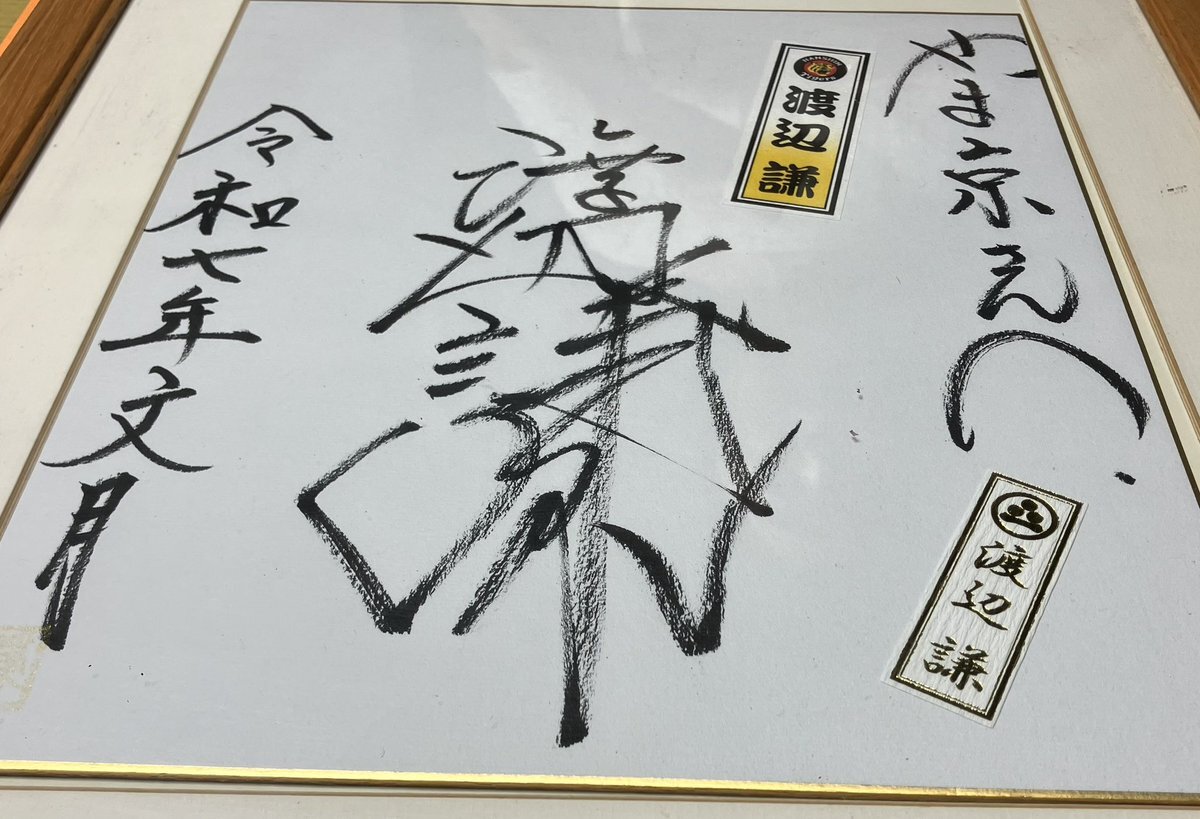 やま京さんへ
HANSHIN Tigers
渡辺謙
渡辺謙
渡辺謙
令和七年文月